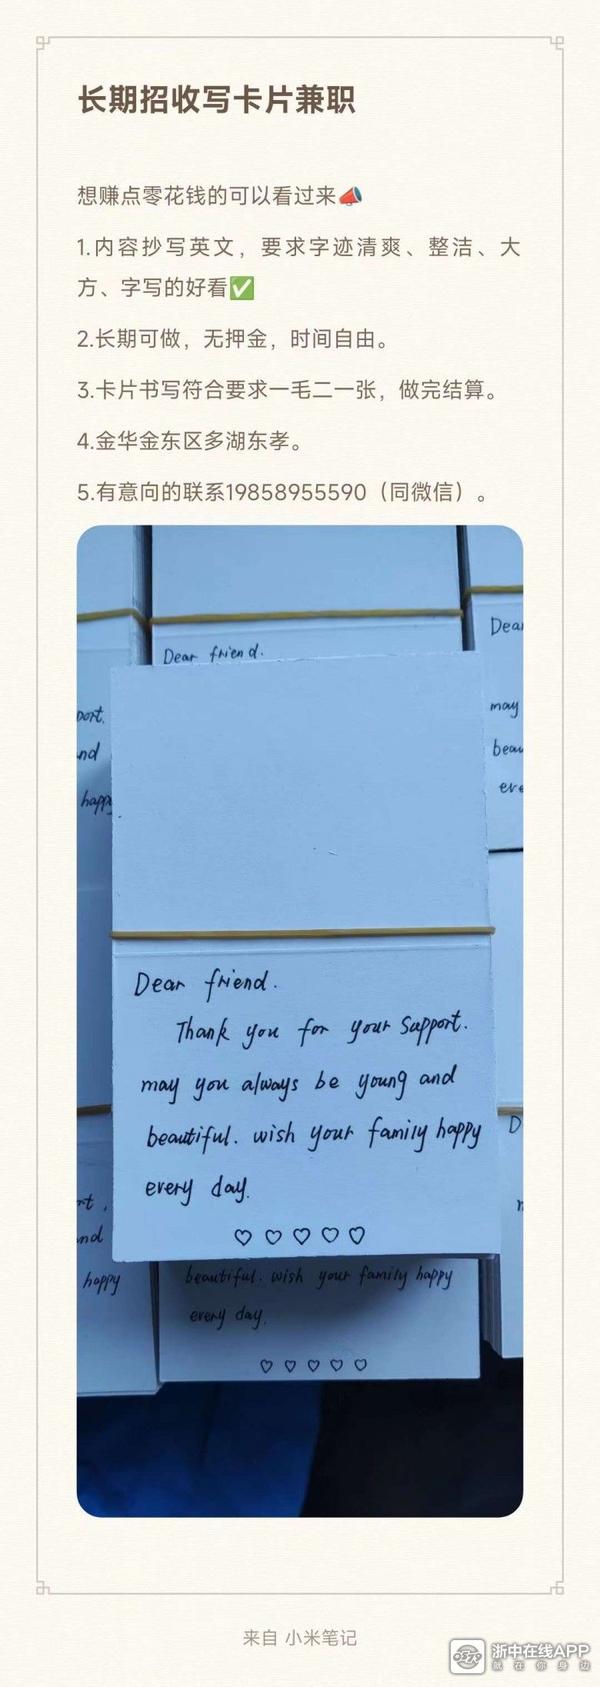 长期招收写卡片兼职
想赚点零花钱的可以看过来📣
1.内容抄写英文，要求字迹清爽、整洁、大
方、字写的好看✅
2.长期可做，无押金，时间自由。
3.卡片书写符合要求一毛二一张，做完结算。
4.金华金东区多湖东孝。
5.有意向的联系19858955590（同微信）。
Dear friend.
Dear
port.
may
nd
beau
happy
eve
Dear friend.
Thank you for your Support.
may you always be young and
beautiful. wish your family happy
every day.
♡ ♡ ♡ ♡ ♡
D
rt,
nd
happy
beautiful. wish your family happy
every day.
♡ ♡ ♡ ♡ ♡
来自 小米笔记
浙中在线APP
就在你身边